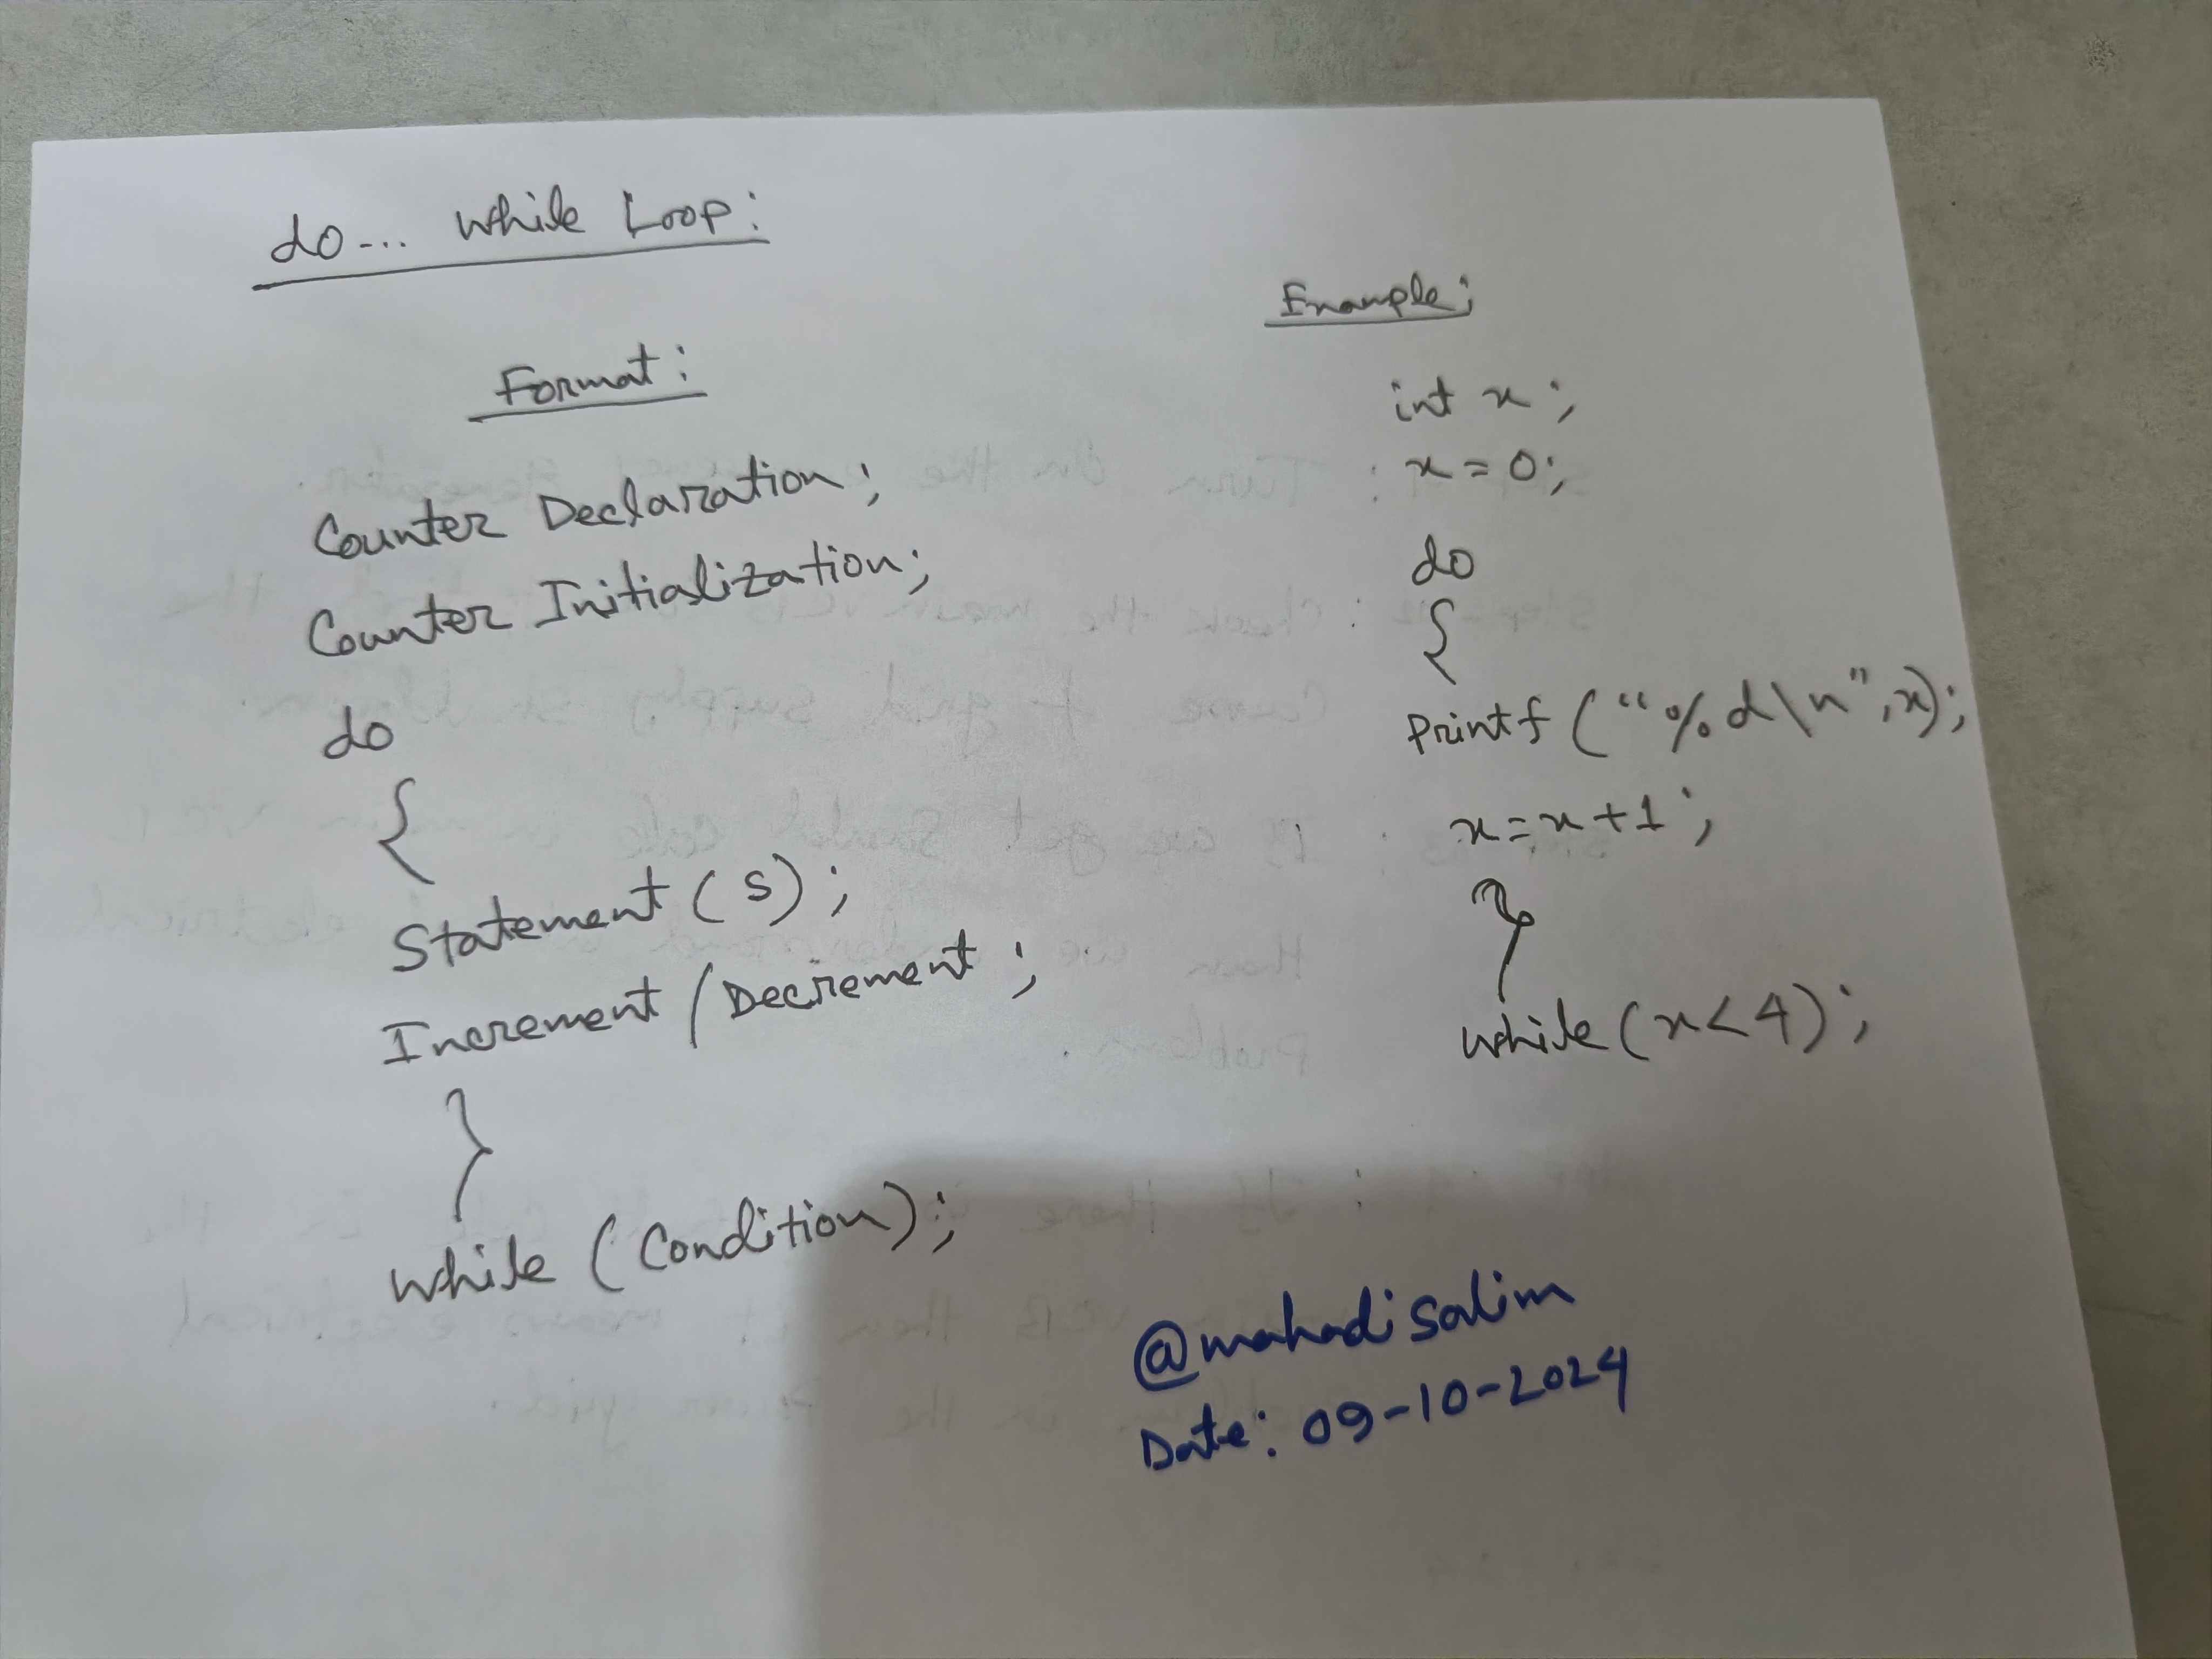 do... while Loop:
Format:
Counter Declaration;
Counter Initialization;
do
{
Statement(s);
Increment/Decrement;
}
while (Condition);
Example:
int x;
x=0;
do
{
printf("%d\n",x);
x=x+1;
}
while(x<4);
@mahadisalim
Date: 09-10-2024